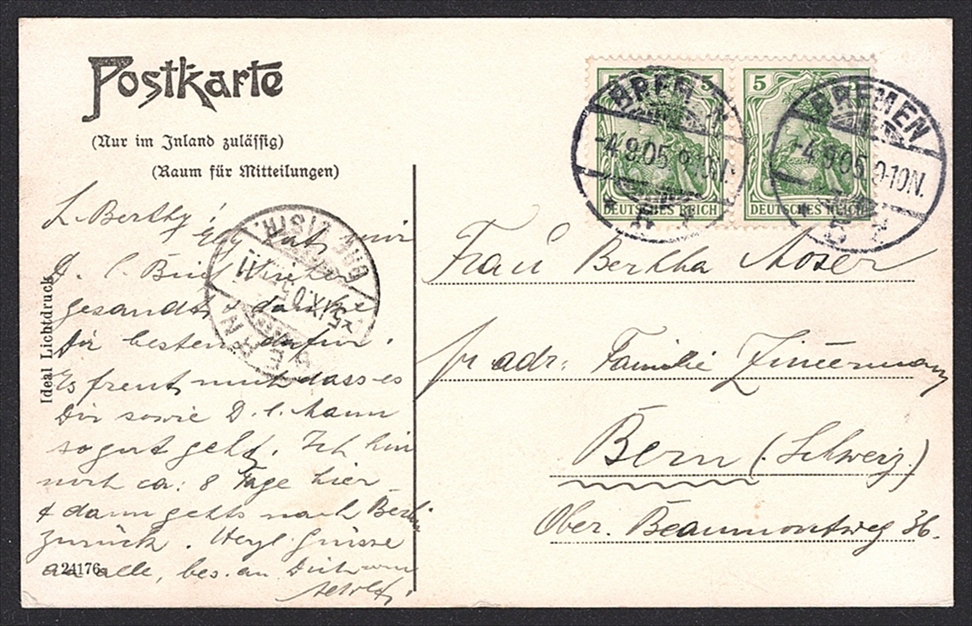 Postkarte
(Nur im Inland zulässig)
(Raum für Mitteilungen)
5 5
DEUTSCHES REICH
5
DEUTSCHES REICH
-4.9.05.9-10N.
BREMEN
-4.9.05.9-10N.
BERN
5.IX.05
L. Berthy!
hat mir
D. l. Brief
gesandt & danke
Dir bestens dafür.
Es freut mich dass es
Dir sowie D. l. Mann
so gut geht. Ich bin
noch ca: 8 Tage hier
& dann gehts nach Berlin
zurück. Herzl. Grüsse
an alle, bes. an Dich von
Ideal Lichtdruck
24176
Frau Bertha Moser
pr adr: Familie Zimmermann
Bern (Schweiz)
Ober. Beaumontweg 36.